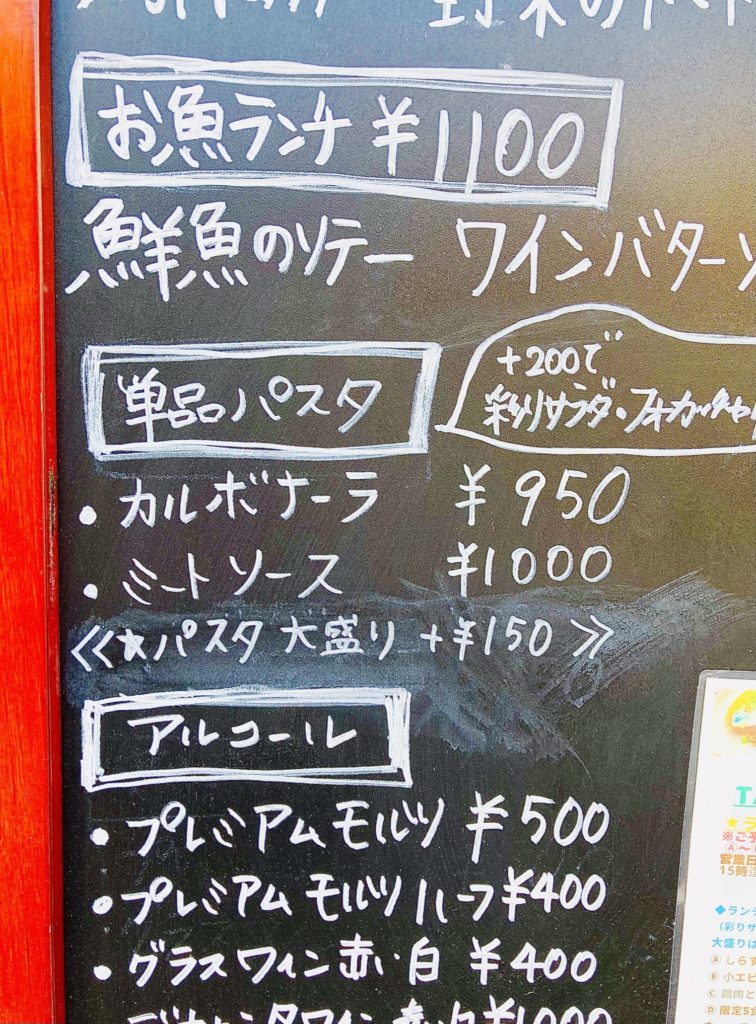 野菜のトマト
お魚ランチ ¥1100
鮮魚のソテー ワインバターソ
単品パスタ
+200で
彩りサラダ・フォカッチャ
・カルボナーラ ¥950
・ミートソース ¥1000
≪★パスタ 大盛り +¥150≫
アルコール
・プレミアムモルツ ¥500
・プレミアムモルツ ハーフ ¥400
・グラスワイン 赤・白 ¥400
・デキャンタワイン 赤・白 ¥1000
TA
★ラ
※ご予
Ⓐ〜
営業日
15時迄
◆ランチ
(彩りサ
大盛りは
Ⓐ しらす
Ⓑ 小エビ
Ⓒ 鶏肉と
Ⓓ 限定5